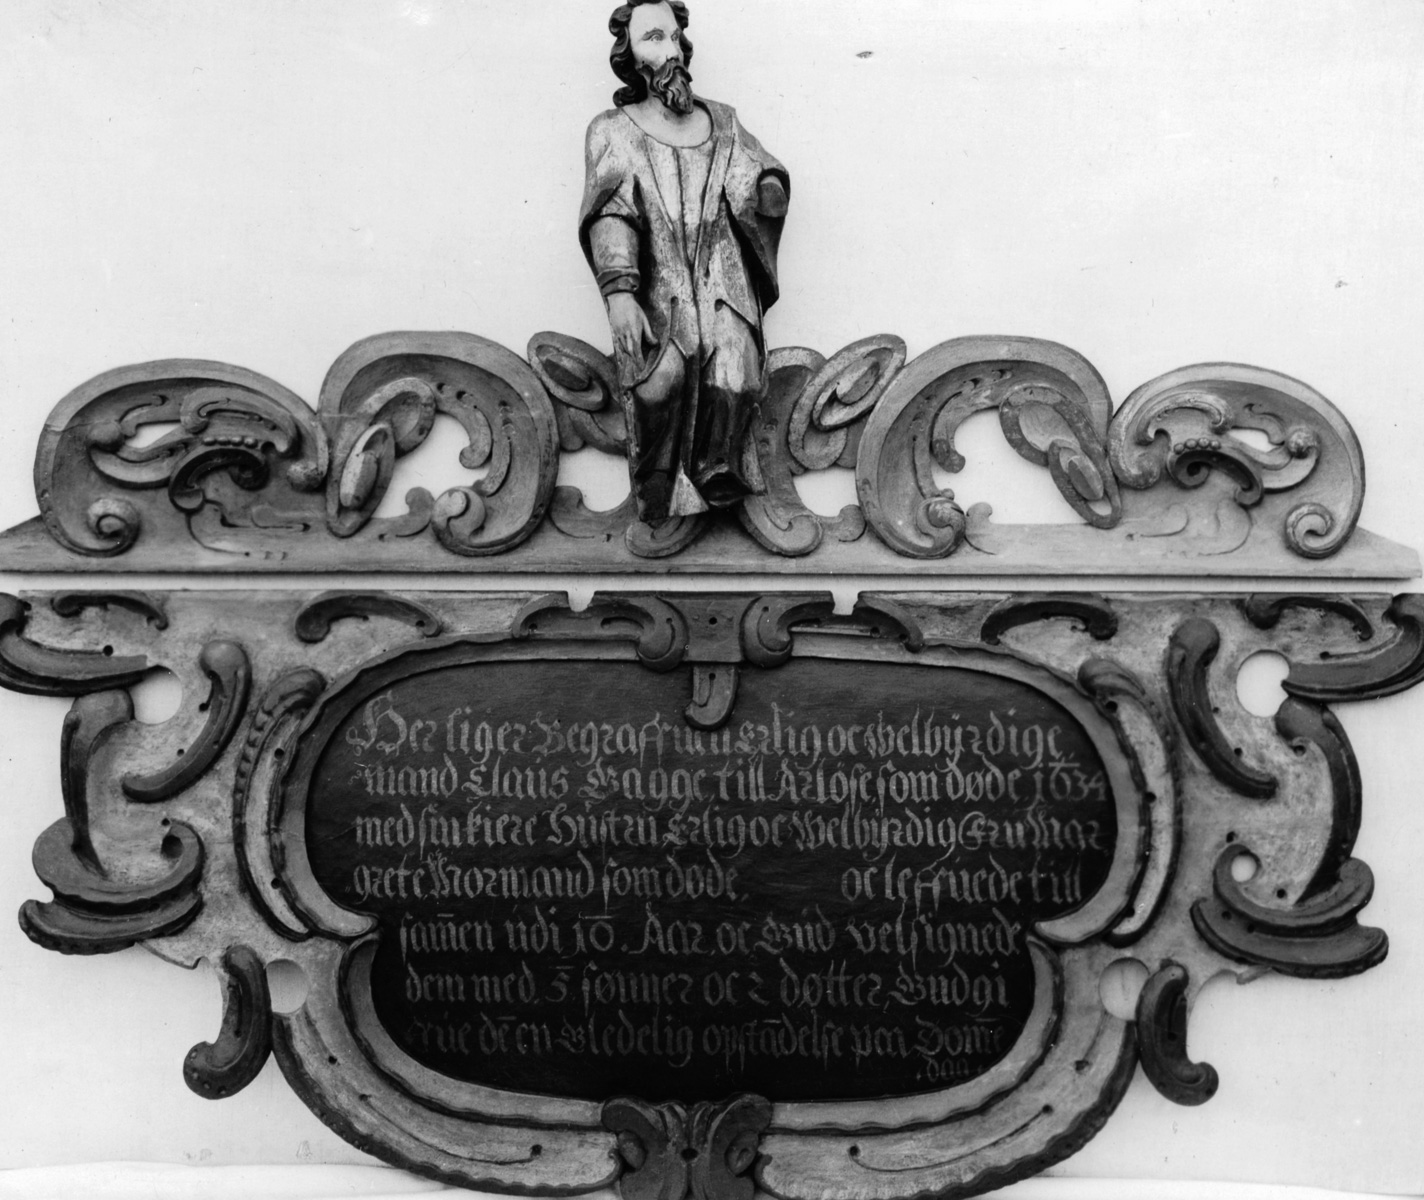 Her liger Begraffuen Erlig oc Welbÿrdige
mand Claus Gagge till Arlöse som døde 1634
med sin kiere Hustru Erlig oc Welbÿrdig Fru Mar
grete Normand som døde. oc leffuede till
sam̄en udi 10. Aar. oc Gud velsignede
dem med. 5. sønner oc 2 døtter, Gud gi
ffue dē en Gledelig opstādelse paa Dom̄e
dag.